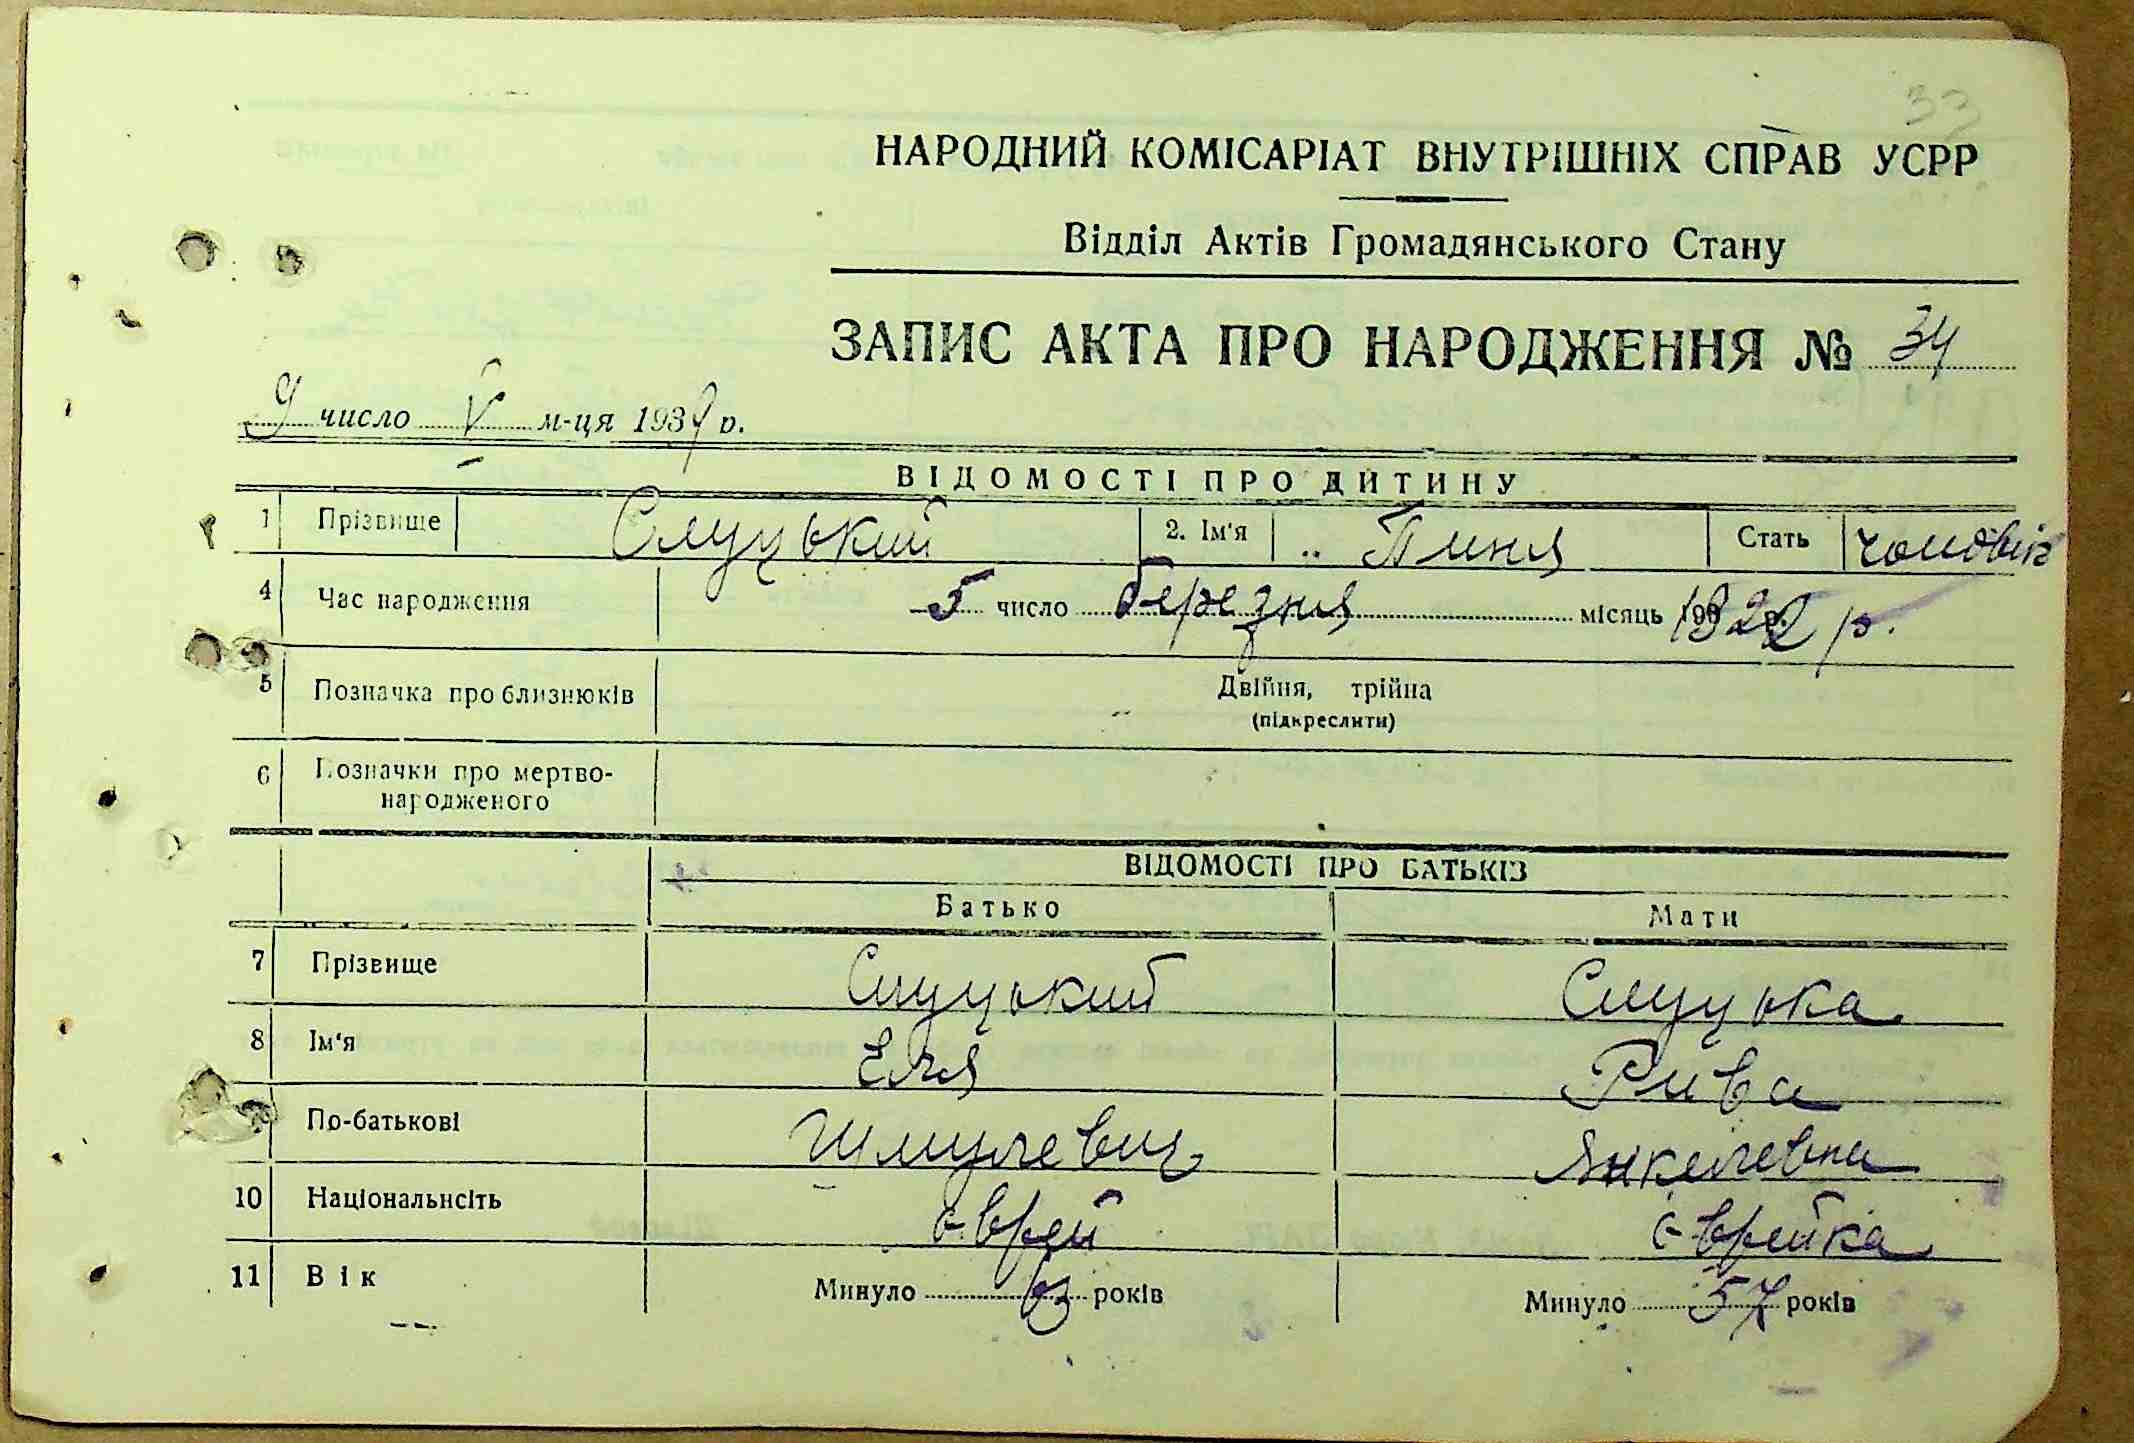 33
НАРОДНИЙ КОМІСАРІАТ ВНУТРІШНІХ СПРАВ УСРР
Відділ Актів Громадянського Стану
ЗАПИС АКТА ПРО НАРОДЖЕННЯ № 34
9 число V м-ця 1939 р.
ВІДОМОСТІ ПРО ДИТИНУ
1 Прізвище Слуцький 2. Ім'я Пиня Стать чоловік
4 Час народження 5 число березня місяць 1922 р.
5 Позначка про близнюків Двійня, трійна
(підкреслити)
6 Позначки про мертво-
народженого
ВІДОМОСТІ ПРО БАТЬКІВ
Батько Мати
7 Прізвище Слуцький Слуцька
8 Ім'я Еля Рива
По-батькові Шмулевич Янкелевна
10 Національнсіть єврей єврейка
11 Вік Минуло 63 років Минуло 57 років